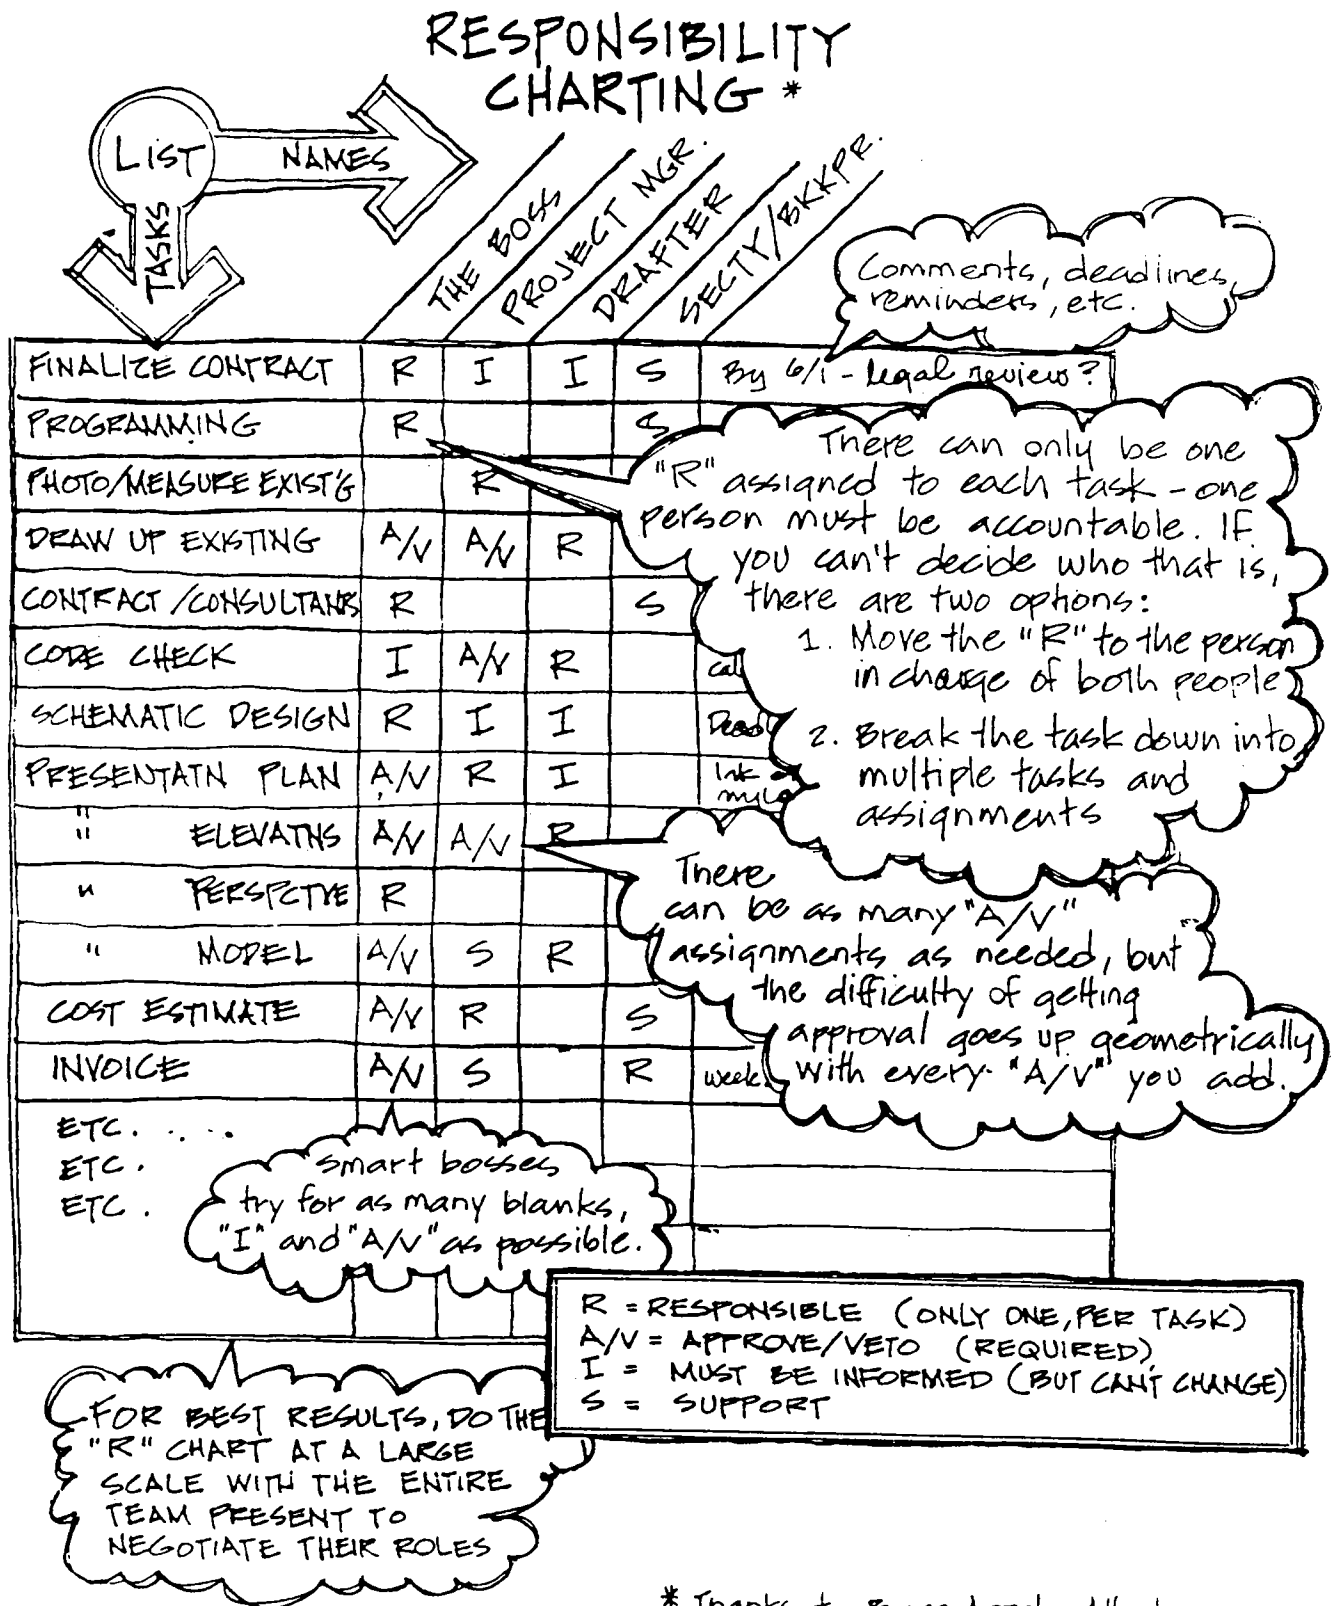 RESPONSIBILITY
CHARTING *
LIST
NAMES
TASKS
THE BOSS
PROJECT MGR.
DRAFTER
SECTY/BKKPR.
Comments, deadlines,
reminders, etc.
FINALIZE CONTRACT R I I S By 6/1 - legal review?
PROGRAMMING R S
PHOTO/MEASURE EXIST'G R
DRAW UP EXISTING A/V A/V R
CONTRACT/CONSULTANTS R S
CODE CHECK I A/V R
SCHEMATIC DESIGN R I I
PRESENTATN PLAN A/V R I Ink
" ELEVATNS A/V A/V R
" PERSPCTVE R
" MODEL A/V S R
COST ESTIMATE A/V R S
INVOICE A/V S R week
ETC. . . .
ETC.
ETC.
There can only be one
"R" assigned to each task - one
person must be accountable. If
you can't decide who that is,
there are two options:
1. Move the "R" to the person
in charge of both people
2. Break the task down into
multiple tasks and
assignments
There
can be as many "A/V"
assignments as needed, but
the difficulty of getting
approval goes up geometrically
with every "A/V" you add.
Smart bosses
try for as many blanks,
"I" and "A/V" as possible.
R = RESPONSIBLE (ONLY ONE, PER TASK)
A/V = APPROVE/VETO (REQUIRED)
I = MUST BE INFORMED (BUT CAN'T CHANGE)
S = SUPPORT
FOR BEST RESULTS, DO THE
"R" CHART AT A LARGE
SCALE WITH THE ENTIRE
TEAM PRESENT TO
NEGOTIATE THEIR ROLES
* Thanks to